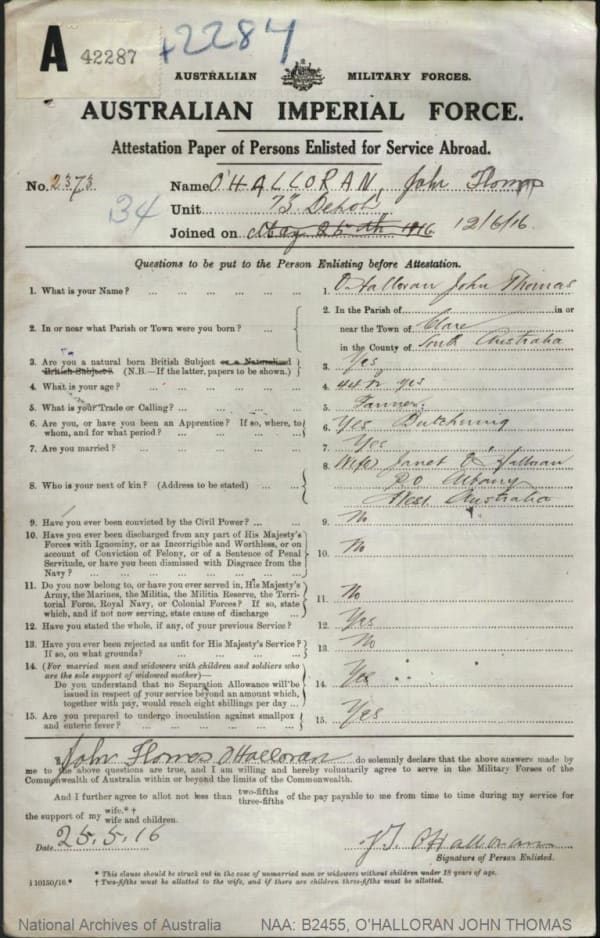 A 42287 42284
AUSTRALIAN MILITARY FORCES.
AUSTRALIAN IMPERIAL FORCE.
Attestation Paper of Persons Enlisted for Service Abroad.
No. 2373. Name O'HALLORAN, John Thomas
34 Unit 73 Depot
Joined on May 25th 1916 12/6/16
Questions to be put to the Person Enlisting before Attestation.
1. What is your Name? ... ... ... ... 1. O'Halloran John Thomas
2. In or near what Parish or Town were you born? ... 2. In the Parish of in or
near the Town of Clare
in the County of South Australia
3. Are you a natural born British Subject or a Naturalised
British Subject? (N.B.—If the latter, papers to be shown.) 3. Yes
4. What is your age? ... ... ... ... 4. 44 yrs
5. What is your Trade or Calling? ... ... ... 5. Farmer.
6. Are you, or have you been an Apprentice? If so, where, to
whom, and for what period? ... ... ... 6. Yes Butchering
7. Are you married? ... ... ... ... 7. Yes
8. Who is your next of kin? (Address to be stated) ... ... 8. Wife Janet O'Halloran
P.O Albany
West Australia
9. Have you ever been convicted by the Civil Power? ... ... 9. No
10. Have you ever been discharged from any part of His Majesty's
Forces with Ignominy, or as Incorrigible and Worthless, or on
account of Conviction of Felony, or of a Sentence of Penal
Servitude, or have you been Dismissed with Disgrace from the
Navy? ... ... ... ... ... 10. No
11. Do you now belong to, or have you ever served in, His Majesty's
Army, the Marines, the Militia, the Militia Reserve, the Terri-
torial Force, Royal Navy, or Colonial Forces? If so, state
which, and if not now serving, state cause of discharge 11. No
12. Have you stated the whole, if any, of your previous Service? 12. Yes
13. Have you ever been rejected as unfit for His Majesty's Service?
If so, on what grounds? ... ... ... ... 13. No
14. (For married men and widowers with children and soldiers who
are the sole support of widowed mother)—
Do you understand that no Separation Allowance will be
issued in respect of your service beyond an amount which,
together with pay, would reach eight shillings per day ... 14. Yes
15. Are you prepared to undergo inoculation against smallpox
and enteric fever? ... ... ... ... 15. Yes
I, John Thomas O'Halloran do solemnly declare that the above answers made by
me to the above questions are true, and I am willing and hereby voluntarily agree to serve in the Military Forces of the
Commonwealth of Australia within or beyond the limits of the Commonwealth.
And I further agree to allot not less than two-fifths three-fifths of the pay payable to me from time to time during my service for
the support of my wife.* † wife and children.
Date 25.5.16 J.T. O'Halloran
Signature of Person Enlisted.
* This clause should be struck out in the case of unmarried men or widowers without children under 18 years of age.
† Two-fifths must be allotted to the wife, and if there are children three-fifths must be allotted.
National Archives of Australia NAA: B2455, O'HALLORAN JOHN THOMAS